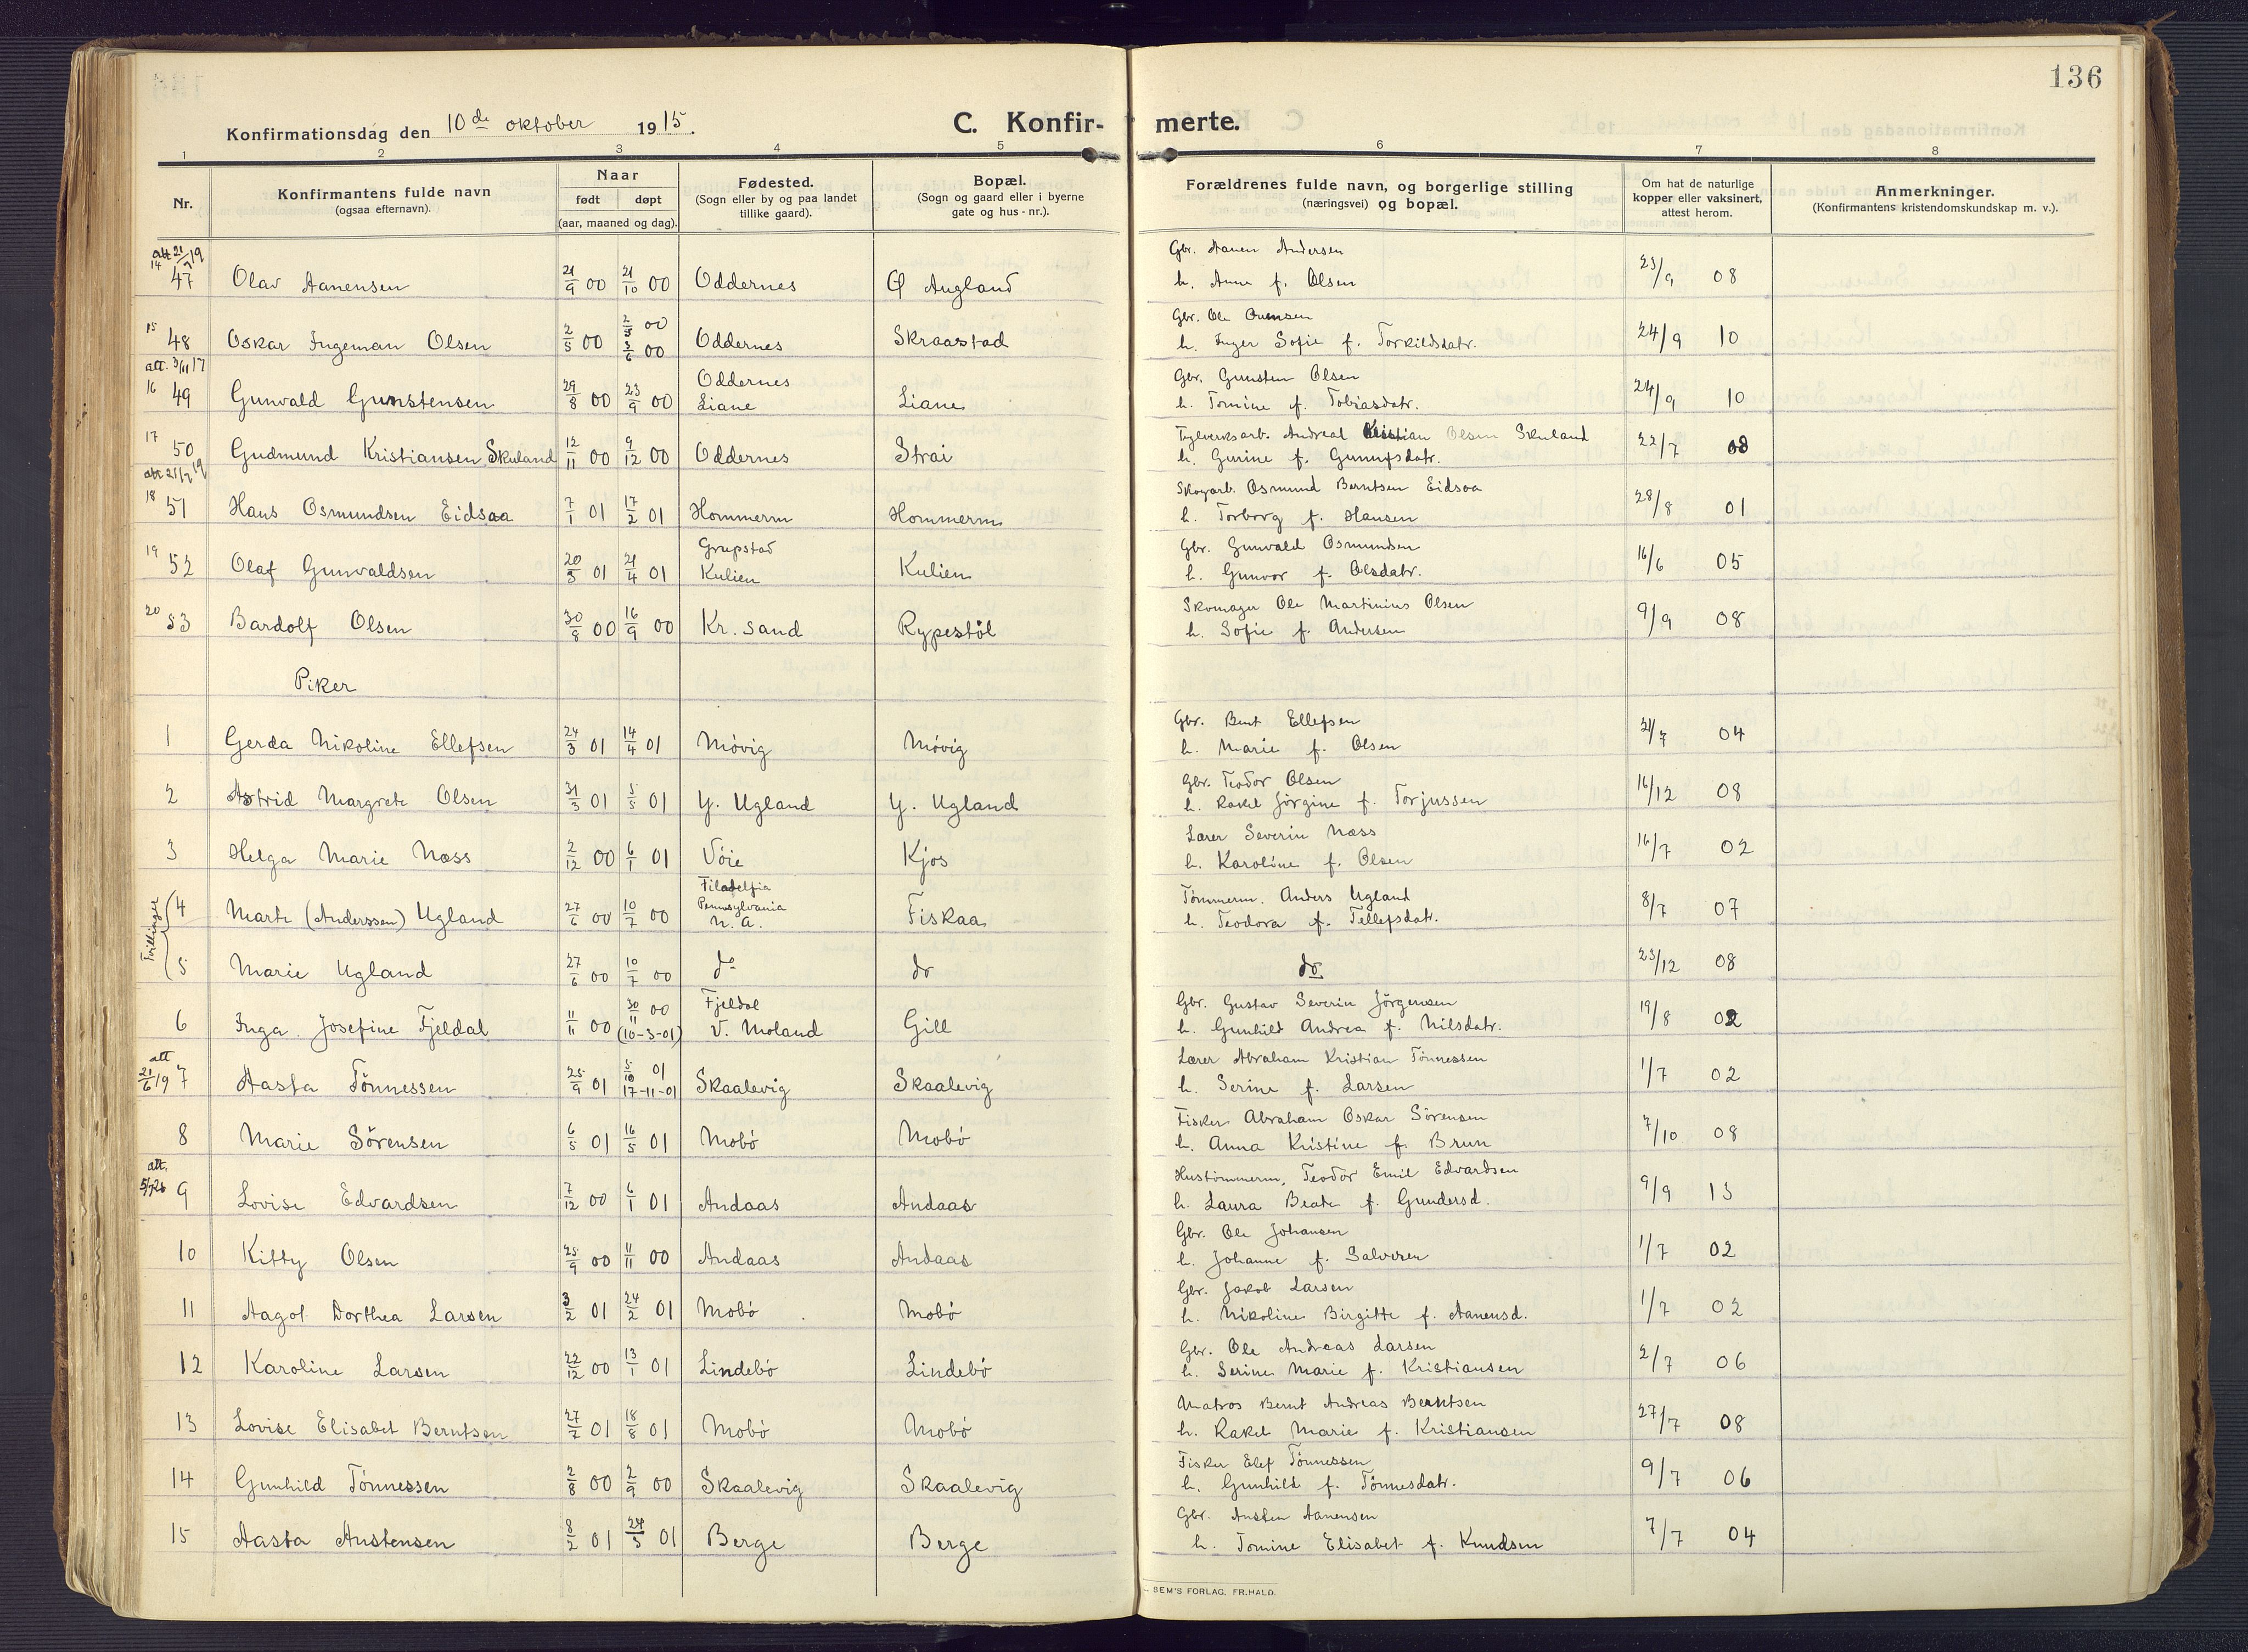 136
Konfirmationsdag den 10de oktober 1915.
C. Konfir-
merte.
1 2 3 4 5 6 7 8
Nr.
Konfirmantens fulde navn
(ogsaa efternavn).
Naar
født døpt
(aar, maaned og dag).
Fødested.
(Sogn eller by og paa landet
tillike gaard).
Bopæl.
(Sogn og gaard eller i byerne
gate og hus-nr.).
Forældrenes fulde navn, og borgerlige stilling
(næringsvei) og bopæl.
Om hat de naturlige
kopper eller vaksinert,
attest herom.
Anmerkninger.
(Konfirmantens kristendomskundskap m. v.).
Gbr. Aanen Andersen
14 47 Olav Aanensen 21/9 00 21/10 00 Oddernes Ø Augland h. Anne f. Olsen 23/9 08
Gbr. Ole
15 48 Oskar Ingeman Olsen 2/5 00 3/6 00 Oddernes Skraastad h. Inger Sofie f. Torkildsdatr. 24/9 10
att. 3/11 17
Oddernes Gbr. Gunsten Olsen
16 49 Gunvald Gunstensen 29/8 00 23/9 00 Liane Liane h. Tomine f. Tobiasdatr. 24/9 10
Teglverksarb. Andreas Kristian Olsen Skuland
17 50 Gudmund Kristiansen Skuland 12/11 00 9/12 00 Oddernes Strai h. Gurine f. 22/7 08
Skogarb. Osmund Berntsen Eidsaa
18 51 Hans Osmundsen Eidsaa 7/1 01 17/2 01 Hommerm Hommerm h. Torborg f. Hansen 28/8 01
Grupstad Gbr. Gunvald Osmundsen
19 52 Olaf Gunvaldsen 20/3 01 21/4 01 Kulien Kulien h. Gunvor f. Olsdatr. 16/6 05
Skomager Ole Martinius Olsen
20 53 Bardolf Olsen 30/8 00 16/9 00 Kr. sand Rypestøl h. Sofie f. Andersen 9/9 08
Piker
Gbr. Bent Ellefsen
1 Gerda Nikoline Ellefsen 24/3 01 14/4 01 Møvig Møvig h. Marie f. Olsen 21/7 04
Gbr. Teodor Olsen
2 Astrid Margrete Olsen 31/3 01 5/5 01 Y. Ugland Y. Ugland h. Rakel Jörgine f. Torjussen 16/12 08
Lærer Severin Næss
3 Helga Marie Næss 2/12 00 6/1 01 Vöie Kjos h. Karoline f. Olsen 16/7 02
Tvillinger
Filadelfia
Pennsylvania Tømmerm. Anders Ugland
4 Marte (Anderssen) Ugland 27/6 00 10/7 00 N. A. Fiskaa h. Teodora f. Tellefsdatr. 8/7 07
5 Marie Ugland 27/6 00 10/7 00 do do do 23/12 08
30/11 00 Fjeldal Gbr. Gustav Severin Jörgensen
6 Inga Josefine Fjeldal 11/11 00 (10-3-01) V. Moland Gill h. Gunhild Andrea f. Nilsdatr. 19/8 02
att 5/10 01 Lærer Abraham Kristian Tönnessen
21/6 19 7 Aasta Tönnessen 25/9 01 17-11-01 Skaalevig Skaalevig h. Serine f. Larsen 1/7 02
Fisker Abraham Oskar Sörensen
8 Marie Sörensen 6/5 01 16/5 01 Mobö Mobö h. Anna Kristine f. Brun 7/10 08
att. Hustømmerm, Teodor Emil Edvardsen
9 Lovise Edvardsen 7/12 00 6/1 01 Andaas Andaas h. Laura Beate f. Gundersd. 9/9 13
Gbr. Ole Johansen
10 Kitty Olsen 25/9 00 11/11 00 Andaas Andaas h. Johanne f. Salvesen 1/7 02
Gbr. Jakob Larsen
11 Aagot Dorthea Larsen 3/2 01 24/2 01 Mobö Mobö h. Nikoline Birgitte f. Aanensd. 1/7 02
Gbr. Ole Andreas Larsen
12 Karoline Larsen 22/12 00 13/1 01 Lindebö Lindebö h. Serine Marie f. Kristiansen 2/7 06
Matros Bernt Andreas Berntsen
13 Lovise Elisabet Berntsen 27/7 01 18/8 01 Mobö Mobö h. Rakel Marie f. Kristiansen 27/7 08
Fisker Elef Tönnessen
14 Gunhild Tönnessen 2/8 00 2/9 00 Skaalevig Skaalevig h. Gunhild f. Tönnesdatr. 9/7 06
Gbr. Austen Aanensen
15 Aasta Austensen 8/2 01 24/3 01 Berge Berge h. Tomine Elisabet f. Knudsen 7/7 04
SEM'S FORLAG. FR. HALD.